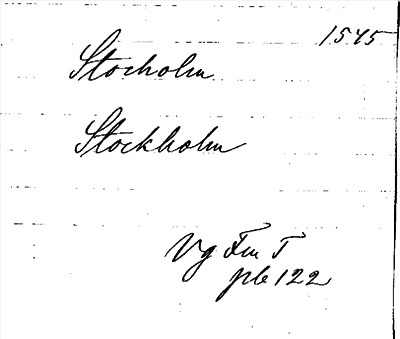 1545
Stocholm
Stockholm
Vg Fm T
ple 122